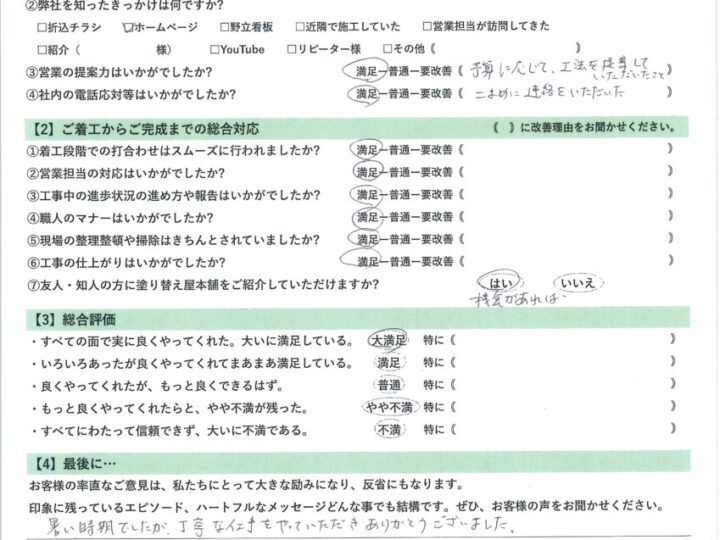 ②弊社を知ったきっかけは何ですか?
□折込チラシ ☑ホームページ □野立看板 □近隣で施工していた □営業担当が訪問してきた
□紹介（ 様） □YouTube □リピーター様 □その他《 》
③営業の提案力はいかがでしたか? 満足ー普通ー要改善《 予算に応じて、工法を提案して いただいたこと 》
④社内の電話応対等はいかがでしたか? 満足ー普通ー要改善《 こまめに連絡をいただいた 》
【2】ご着工からご完成までの総合対応 《 》に改善理由をお聞かせください。
①着工段階での打合わせはスムーズに行われましたか? 満足ー普通ー要改善《 》
②営業担当の対応はいかがでしたか? 満足ー普通ー要改善《 》
③工事中の進歩状況の進め方や報告はいかがでしたか? 満足ー普通ー要改善《 》
④職人のマナーはいかがでしたか? 満足ー普通ー要改善《 》
⑤現場の整理整頓や掃除はきちんとされていましたか? 満足ー普通ー要改善《 》
⑥工事の仕上がりはいかがでしたか? 満足ー普通ー要改善《 》
⑦友人・知人の方に塗り替え屋本舗をご紹介していただけますか? はい いいえ
機会があれば
【3】総合評価
・すべての面で実に良くやってくれた。大いに満足している。 大満足 特に《 》
・いろいろあったが良くやってくれてまあまあ満足している。 満足 特に《 》
・良くやってくれたが、もっと良くできるはず。 普通 特に《 》
・もっと良くやってくれたらと、やや不満が残った。 やや不満 特に《 》
・すべてにわたって信頼できず、大いに不満である。 不満 特に《 》
【4】最後に…
お客様の率直なご意見は、私たちにとって大きな励みになり、反省にもなります。
印象に残っているエピソード、ハートフルなメッセージどんな事でも結構です。ぜひ、お客様の声をお聞かせください。
暑い時期でしたが、丁寧な仕事をやっていただきありがとうございました。